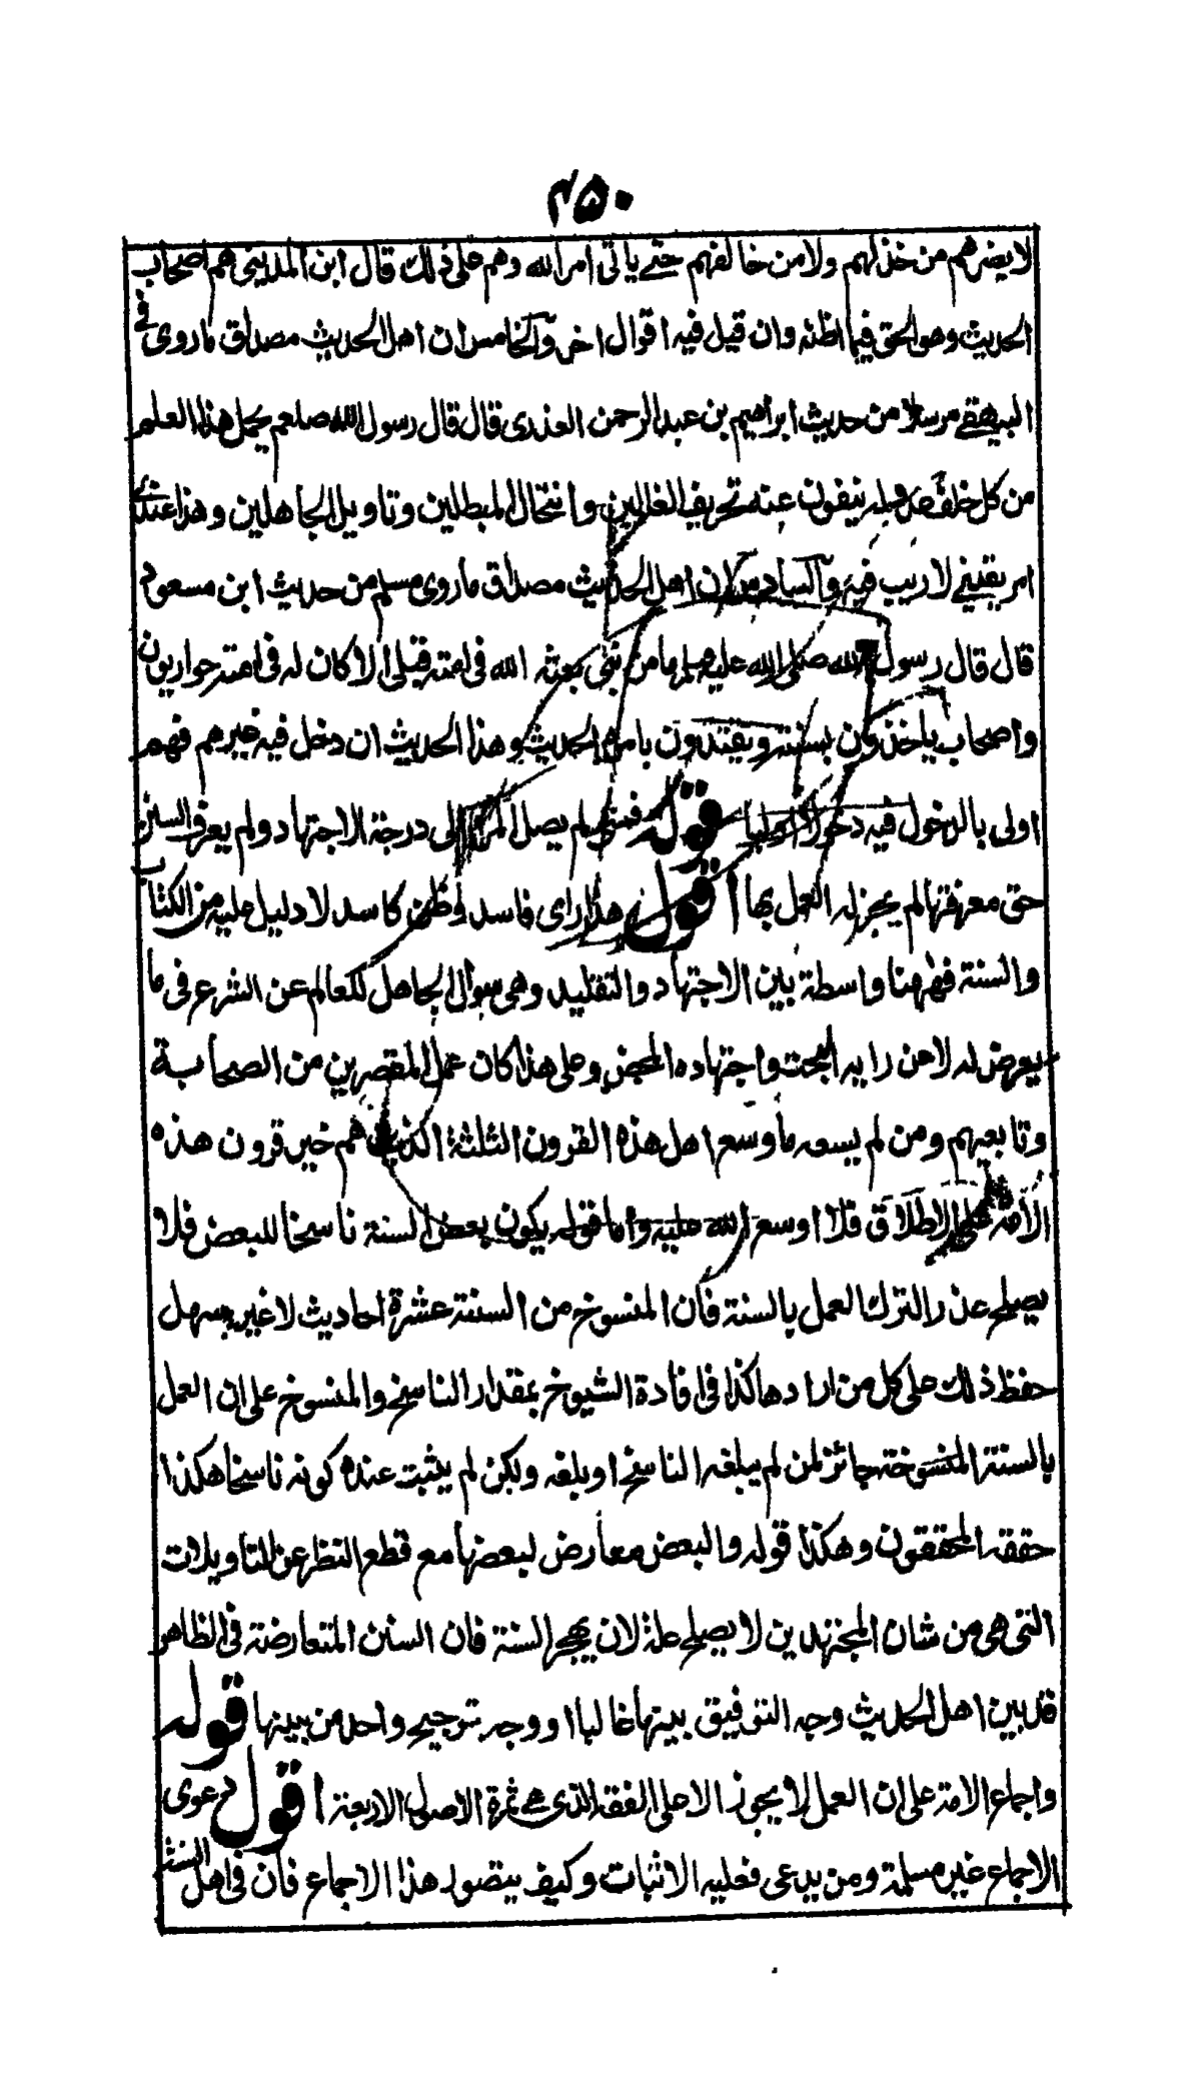 ۴۵۰
لا يضرهم من خذلهم ولا من خالفهم حتے ياتی امر الله وهم علی ذلك قال ابن المدينی هم اصحاب
الحديث وهو الحق فيما اظنه وان قيل فيه اقوال اخر والخامس ان اهل الحديث مصداق ماروی فے
البيهقے مرسلا من حديث ابراهيم بن عبد الرحمن العذری قال قال رسول الله صلعم يحمل هذا العلم
من كل خلف عدوله ينفون عنه تحريف الغالين وانتحال المبطلين وتاويل الجاهلين وهذا عندے
امر يقينے لا ريب فيه والسادس ان اهل الحديث مصداق ماروی مسلم من حديث ابن مسعود
قال قال رسول الله صلی الله عليه وسلم ما من نبی بعثه الله فی امته قبلی الا كان له فی امته حواريون
واصحاب ياخذون بسنته ويقتدون بامره الحديث وهذا الحديث ان دخل فيه غيرهم فهم
اولی بالدخول فيه دخولا اوليا قوله فمتی لم يصل المرء الی درجة الاجتهاد ولم يعرف السنن
حتی معرفتها لم يجز له العمل بها اقول هذا رای فاسد وظن كاسد لا دليل عليه من الكتاب
والسنة فههنا واسطة بين الاجتهاد والتقليد وهی سوال الجاهل للعالم عن الشرع فی ما
يعرض له لا من رايه البحت واجتهاده المحض وعلی هذا كان عمل المقصرين من الصحابة
وتابعيهم ومن لم يسعه ما وسع اهل هذه القرون الثلثة الذين هم خير قرون هذه
الامة علی الاطلاق فلا اوسع الله عليه واما قوله يكون بعض السنة ناسخا للبعض فلا
يصلح عذرا لترك العمل بالسنة فان المنسوخ من السنة عشرة احاديث لا غير يسهل
حفظ ذلك علی كل من ارادها كذا فی افادة الشيوخ بمقدار الناسخ والمنسوخ علی ان العمل
بالسنة المنسوخة جائز لمن لم يبلغه الناسخ او بلغه ولكن لم يثبت عنده كونه ناسخا هكذا
حققه المحققون وهكذا قوله والبعض معارض لبعضها مع قطع النظر عن التاويلات
التی هی من شان المجتهدين لا يصلح علة لان يهجر السنة فان السنن المتعارضة فی الظاهر
قد بين اهل الحديث وجه التوفيق بينها غالبا او وجه ترجيح واحد من بينها قوله
واجماع الامة علی ان العمل لا يجوز الا علی الفقه الذی هے ثمرة الاصول الاربعة اقول دعوی
الاجماع غير مسلمة ومن يدعی فعليه الاثبات وكيف يتصور هذا الاجماع فان فی اهل السنة